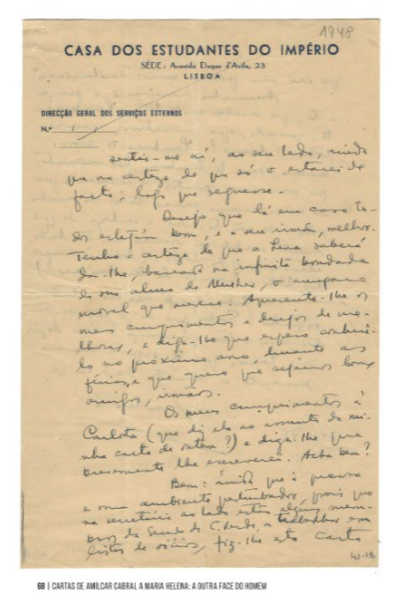 1948
CASA DOS ESTUDANTES DO IMPÉRIO
SÉDE: Avenida Duque d'Avila, 23
LISBOA
DIRECÇÃO GERAL DOS SERVIÇOS EXTERNOS
N.º
sentir-me aí, ao seu lado, ainda
que na certeza de que só o estarei de
facto, logo que regresse.
Desejo que lá em casa to-
dos estejam bons, e o seu irmão, melhor.
Tenho a certeza de que a Lena saberá
dar-lhe, baseada na infinita bondade
da sua alma de Mulher, o amparo
moral que merece. Apresente-lhe os
meus cumprimentos e desejos de me-
lhoras, e diga-lhe que espero conhecê-
lo no próximo ano, durante as
férias, e que quero que sejamos bons
amigos, irmãos.
Os meus cumprimentos à
Carlota (que diz ela ao assunto da mi-
nha carta de ontem?) e diga-lhe que
brevemente lhe escreverei. Acha bem?
Bem: ainda que à pressa
e num ambiente perturbador, pois que
na secretária ao lado estão alguns mem-
bros da Secção de C. Verde, a trabalhar em
listas de sócios, fiz-lhe esta carta
68 | CARTAS DE AMÍLCAR CABRAL A MARIA HELENA: A OUTRA FACE DO HOMEM